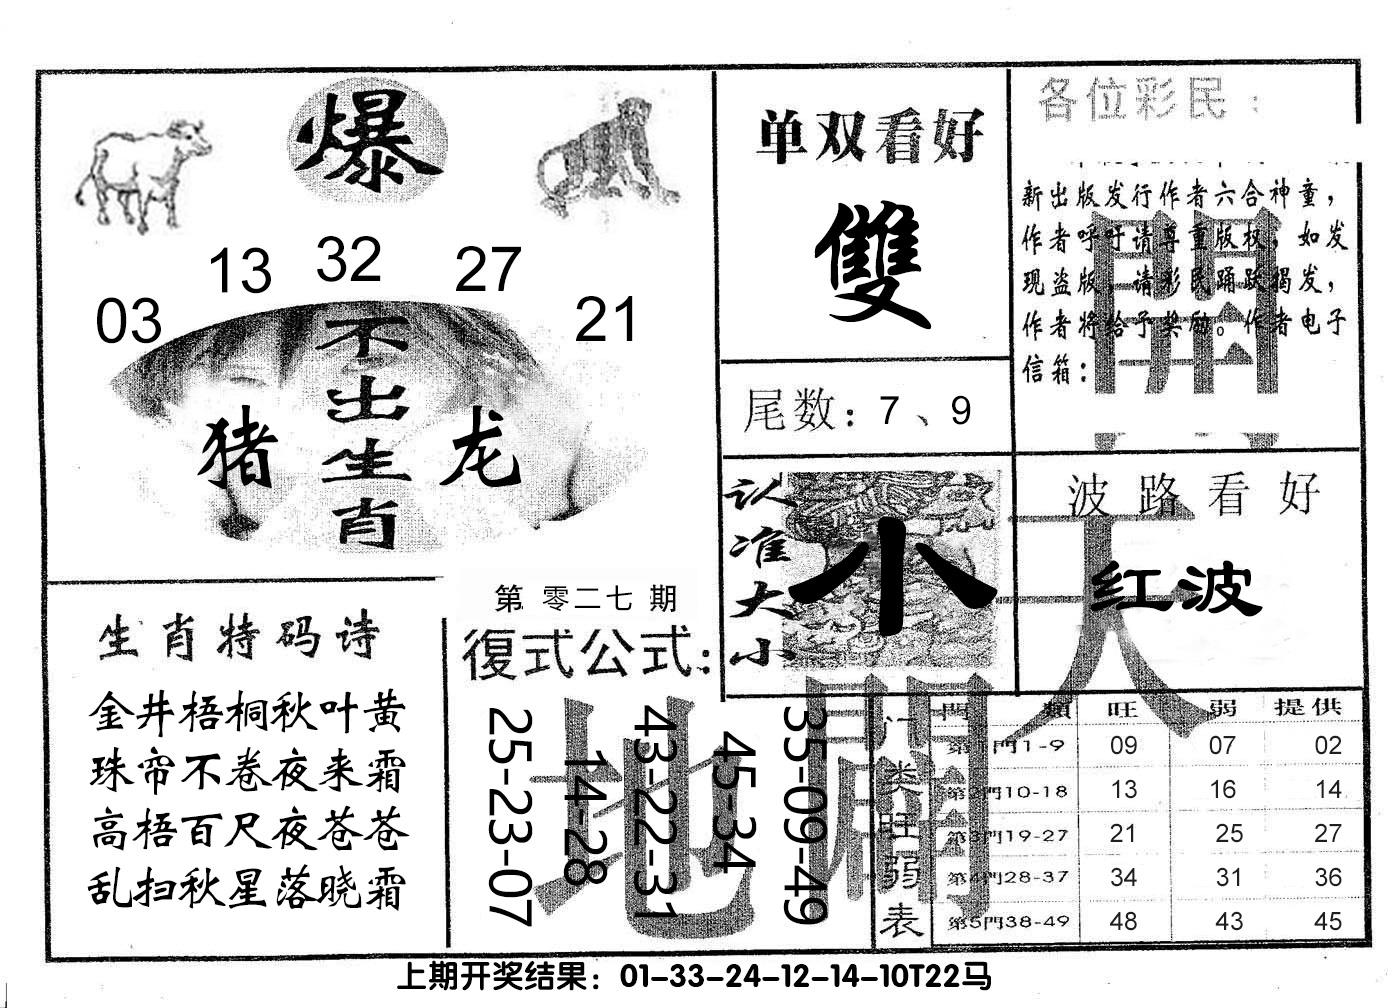 爆
03
13
32
27
21
不出生肖
猪
龙
单双看好
雙
尾数：7、9
各位彩民：
新出版发行作者六合神童，
作者呼吁请尊重版权，如发
现盗版，请彩民踊跃揭发，
作者将给予奖励。作者电子
信箱：
認准大小
小
波路看好
红波
天
開
地
閒
生肖特码诗
金井梧桐秋叶黄
珠帘不卷夜来霜
高梧百尺夜苍苍
乱扫秋星落晓霜
第 零二七 期
復式公式：
25-23-07
14-28
43-22-31
45-34
35-09-49
门类旺弱表
門 類 旺 弱 提供
第1門1-9 09 07 02
第2門10-18 13 16 14
第3門19-27 21 25 27
第4門28-37 34 31 36
第5門38-49 48 43 45
上期开奖结果：01-33-24-12-14-10T22马